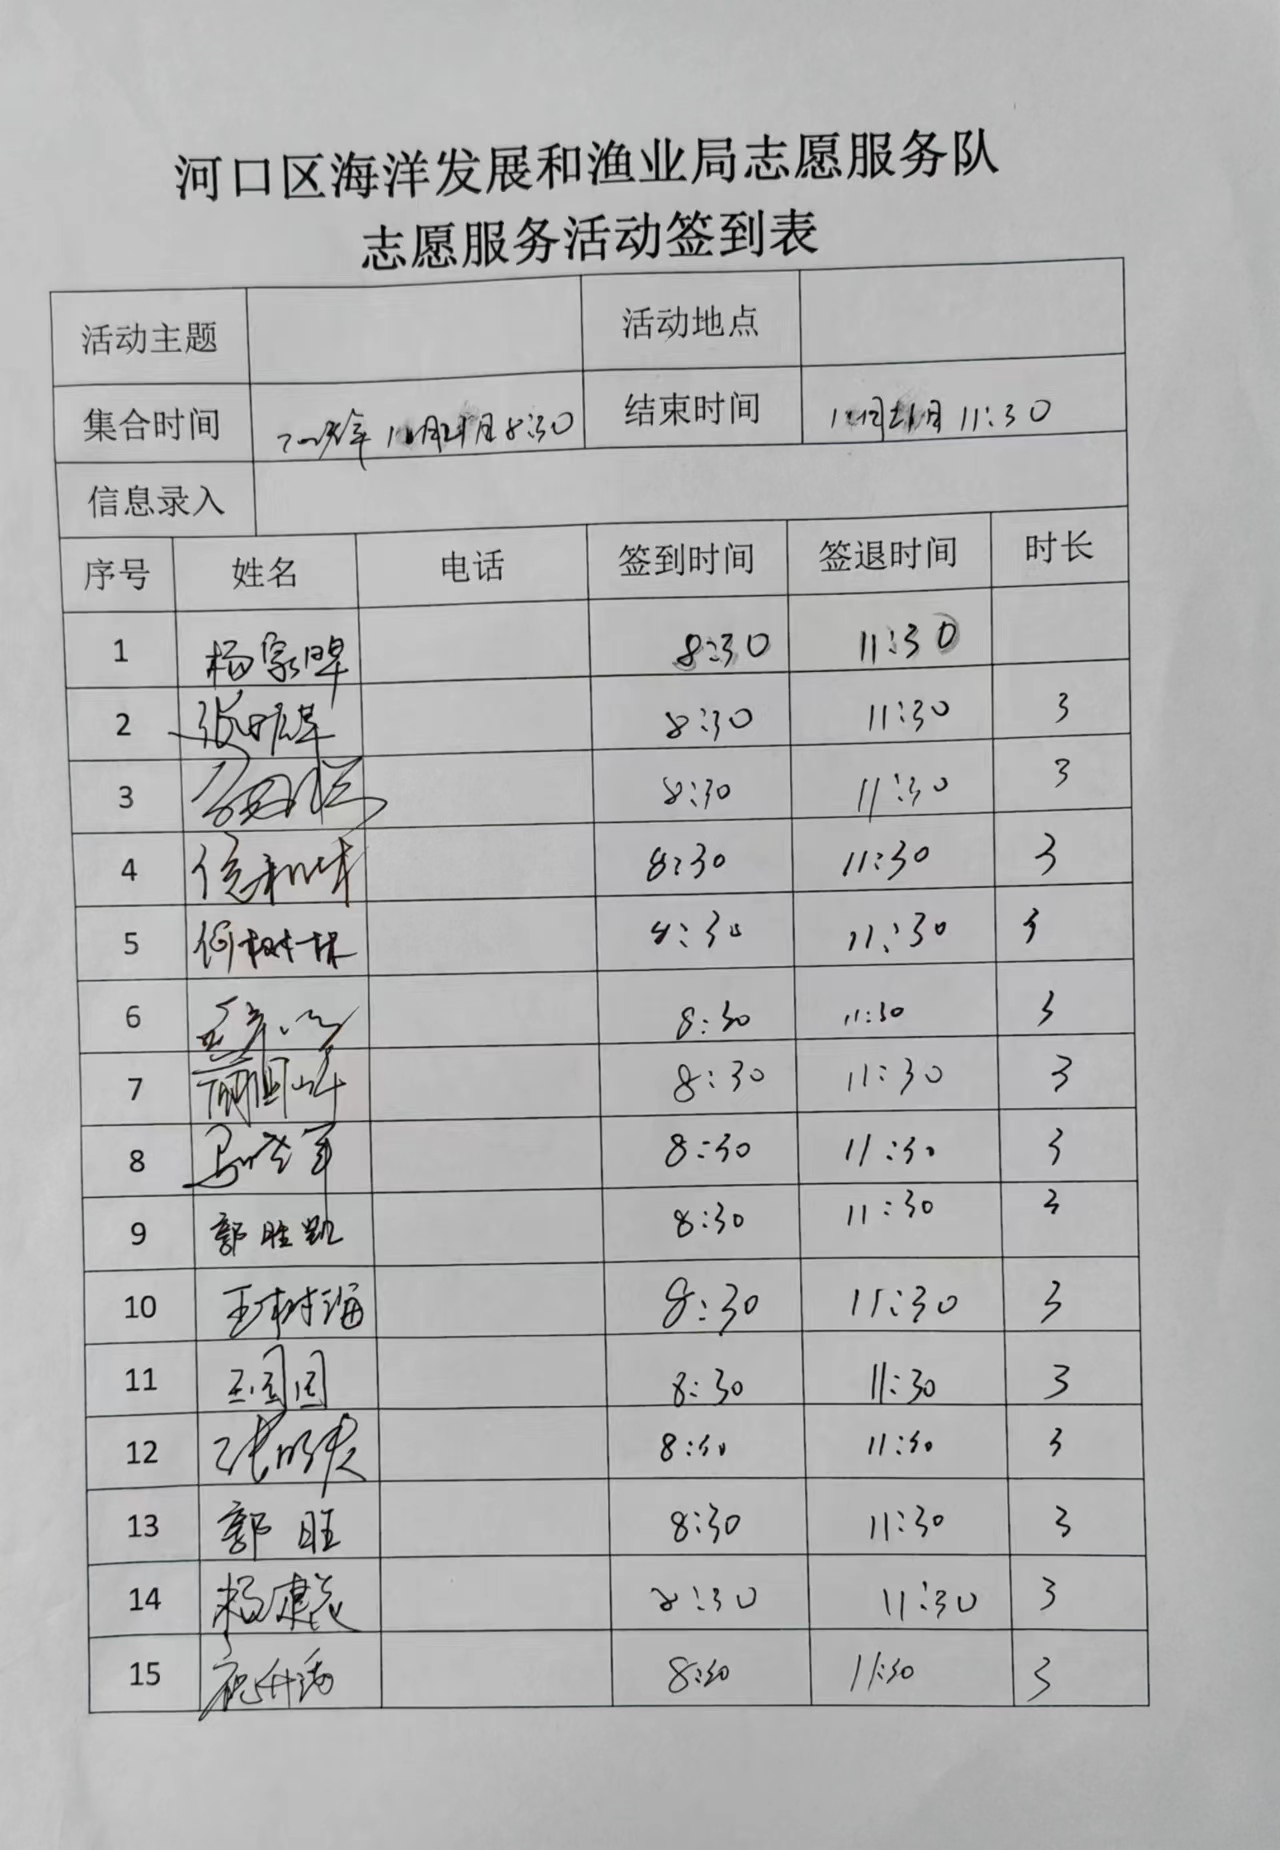 河口区海洋发展和渔业局志愿服务队
志愿服务活动签到表
活动主题 活动地点
集合时间 8:30 结束时间 11:30
信息录入
序号 姓名 电话 签到时间 签退时间 时长
1 8:30 11:30
2 8:30 11:30 3
3 8:30 11:30 3
4 8:30 11:30 3
5 何树林 8:30 11:30 3
6 8:30 11:30 3
7 8:30 11:30 3
8 8:30 11:30 3
9 郭胜凯 8:30 11:30 3
10 王树海 8:30 11:30 3
11 8:30 11:30 3
12 8:30 11:30 3
13 郭旺 8:30 11:30 3
14 8:30 11:30 3
15 8:30 11:30 3